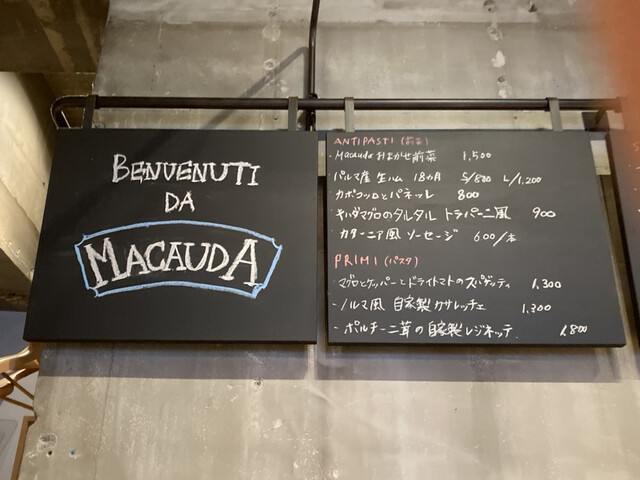 BENVENUTI
DA
MACAUDA
ANTIPASTI (前菜)
・Macauda おまかせ前菜 1,500
・パルマ産 生ハム 18カ月 S/800 L/1,200
・カポコッロとパネッレ 800
・キハダマグロのタルタル トラパーニ風 900
・カターニア風 ソーセージ 600/本
PRIMI (パスタ)
・マグロとケッパーとドライトマトのスパゲッティ 1,300
・ノルマ風 自家製カサレッチェ 1,300
・ポルチーニ茸の自家製レジネッテ 1,800